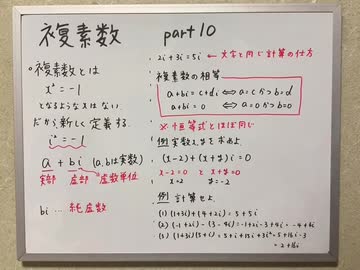 複素数 part10
◦複素数とは
x²=-1
となるようなxはない.
だから新しく定義する.
i²=-1
a+bi (a,bは実数)
実部 虚部 虚数単位
bi … 純虚数
2i+3i=5i ← 文字と同じ計算の仕方
複素数の相等
a+bi=c+di ⇔ a=cかつb=d
a+bi=0 ⇔ a=0かつb=0
※恒等式とほぼ同じ
例 実数x,yを求めよ.
(x-2)+(x+y)i=0
x-2=0 と x+y=0
x=2 y=-2
例 計算せよ.
(1)(1+3i)+(4+2i)=5+5i
(2)(-1+2i)-(3-4i)=-1+2i-3+4i=-4+6i
(3)(1+3i)(5+i)=5+i+15i+3i²=5+16i-3
=2+16i